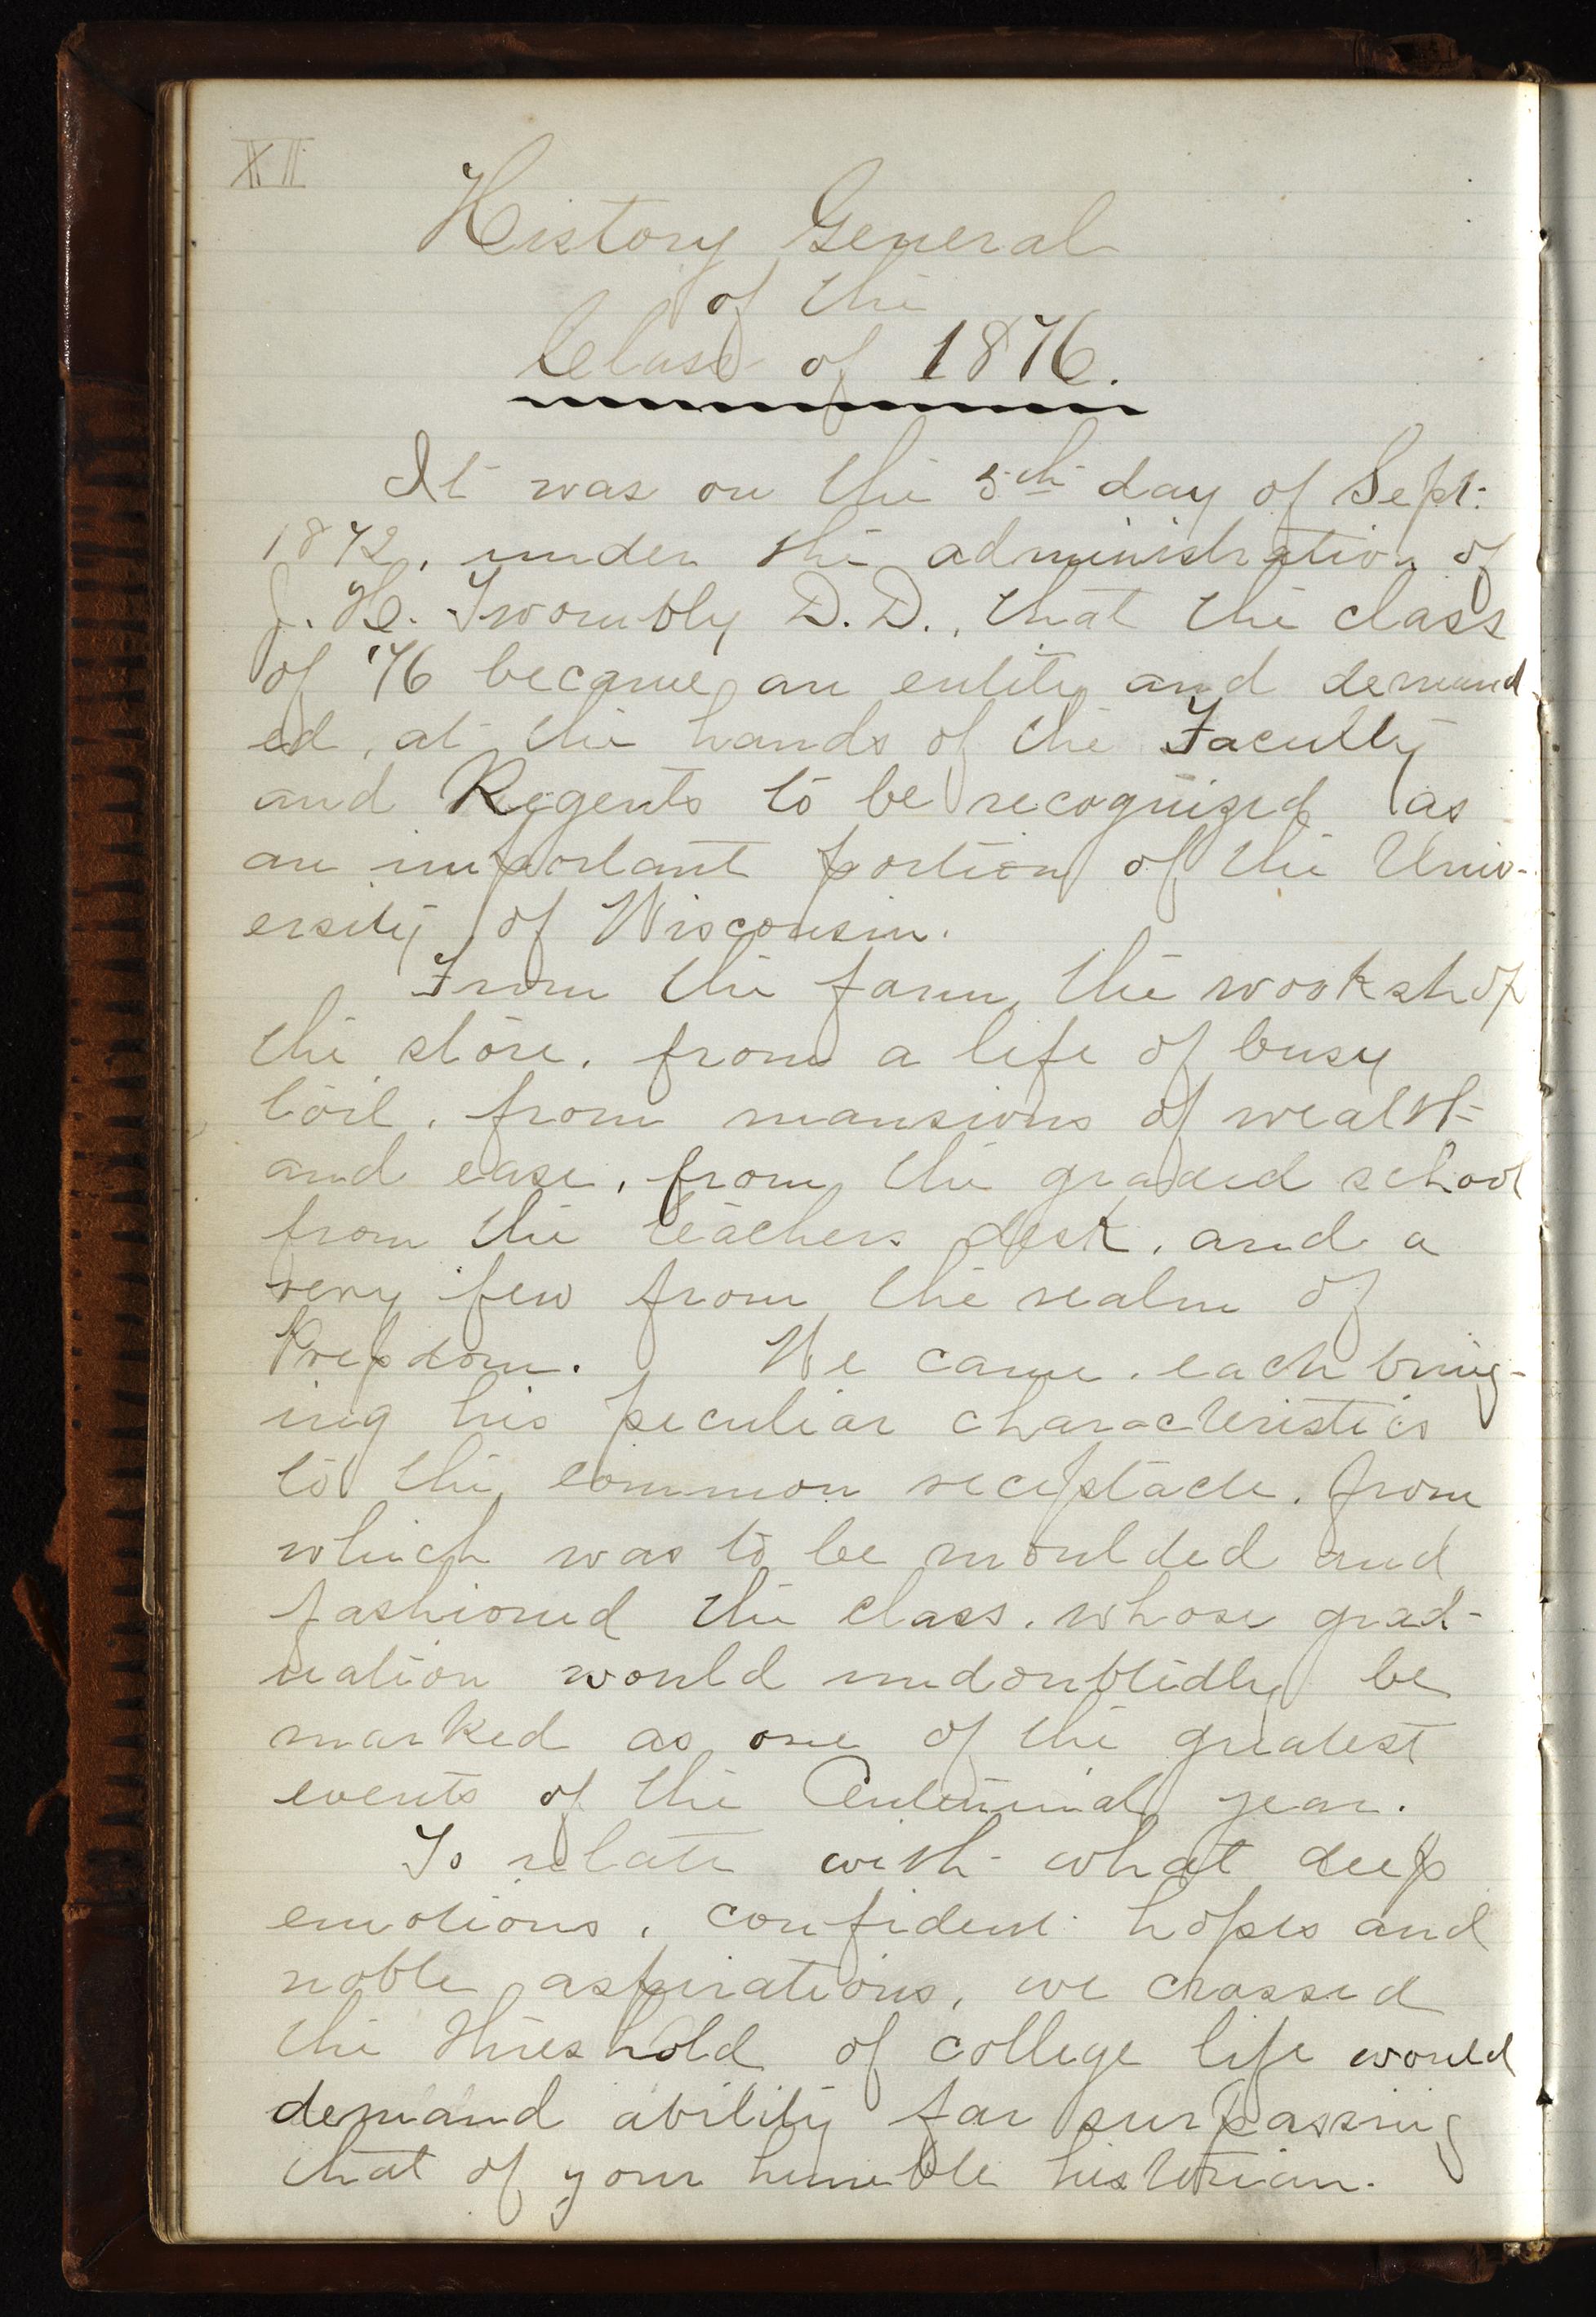 XII
History General
of the
Class of 1876.
It was on the 5th day of Sept.
1872, under the administration of
J. H. Twombly D.D., that the class
of '76 became an entity and demand
ed, at the hands of the Faculty
and Regents to be recognized as
an important portion of the Univ-
ersity of Wisconsin.
From the farm, the workshop
the store, from a life of busy
toil, from mansions of wealth
and ease, from the graded school
from the teachers desk, and a
very few from the realm of
Prepdom. We came, each bring-
ing his peculiar characteristics
to the common receptacle, from
which was to be moulded and
fashioned the class, whose grad-
uation would undoubtedly be
marked as one of the greatest
events of the Centennial year.
To relate with what deep
emotions, confident hopes and
noble aspirations, we crossed
the threshold of college life would
demand ability far surpassing
that of your humble historian.